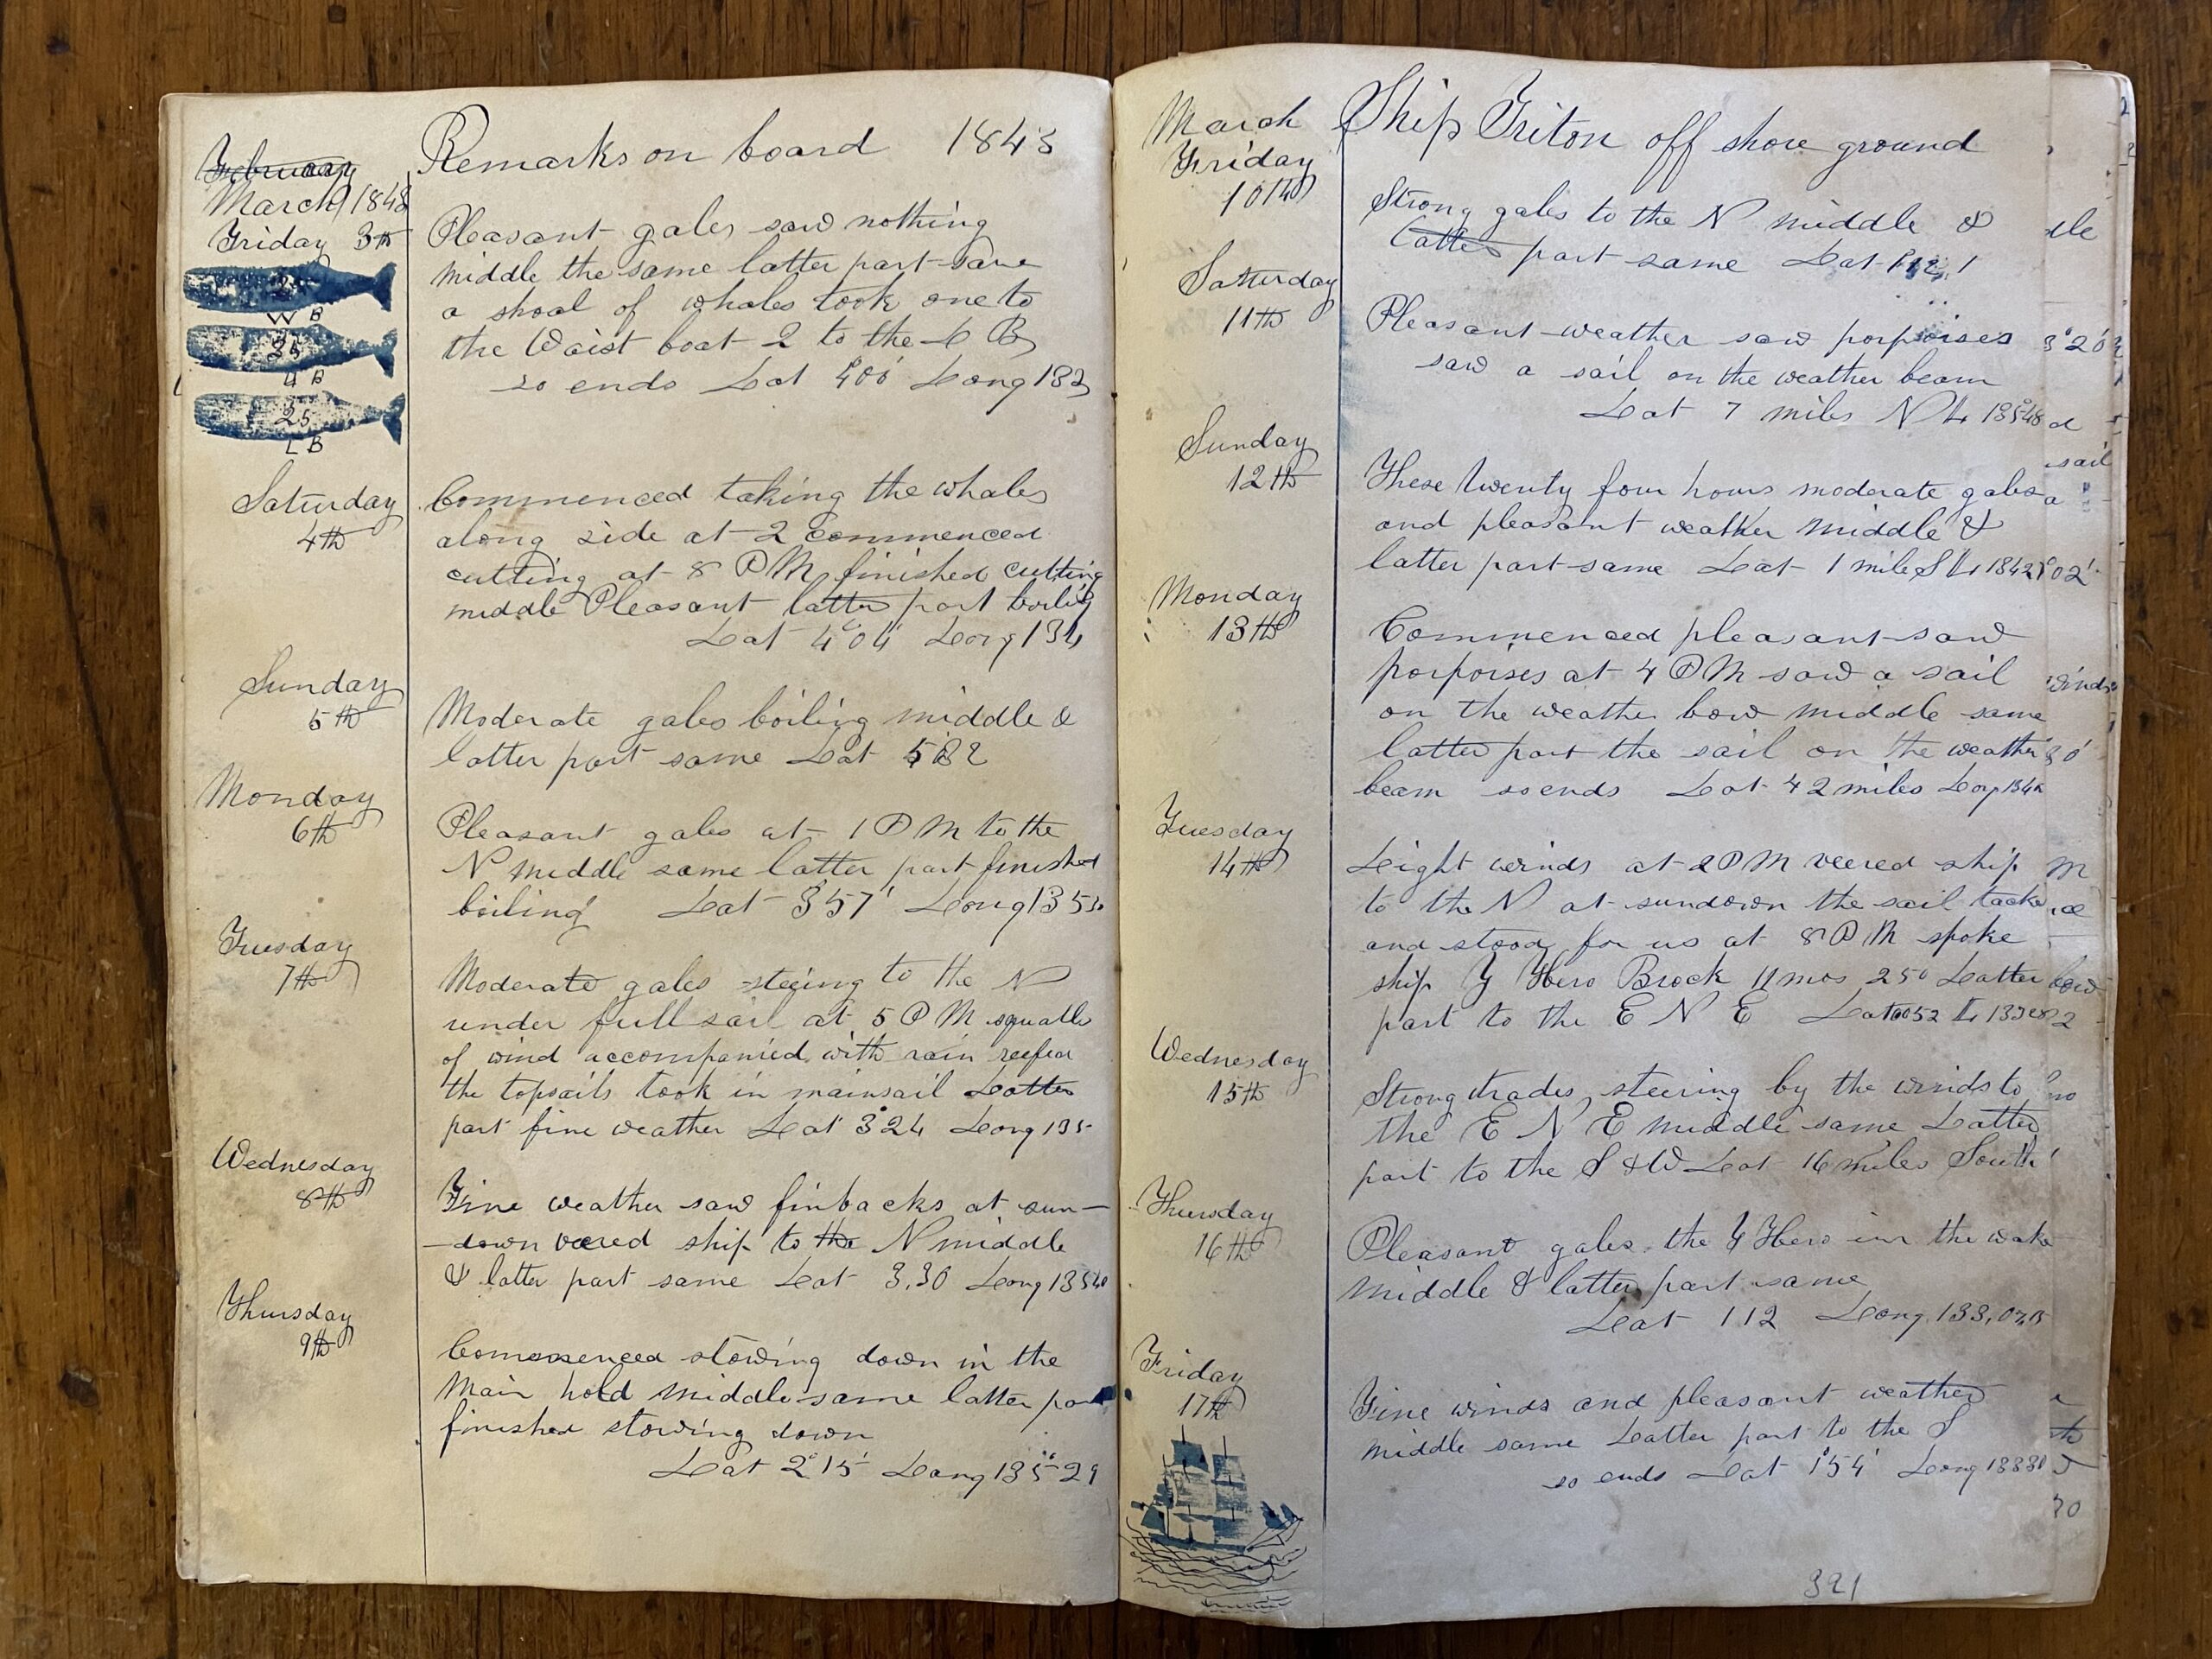 February
March 1843
Remarks on board 1843
Friday 3th
Pleasant gales saw nothing
middle the same latter part saw
a shoal of whales took one to
the Waist boat 2 to the L B
so ends Lat 4°00' Long 132
W B
25
L B
25
L B
Saturday
4th
Commenced taking the whales
along side at 2 commenced
cutting at 8 P M finished cutting
middle Pleasant latter part boiling
Lat 4°04' Long 134
Sunday
5th
Moderate gales boiling middle &
latter part same Lat
Monday
6th
Pleasant gales at 1 P M to the
N middle same latter part finished
boiling Lat 3°57' Long 135
Tuesday
7th
Moderate gales steeing to the N
under full sail at 5 P M squalls
of wind accompanied with rain reefed
the topsails took in mainsail Latter
part fine weather Lat 3°24 Long 135
Wednesday
8th
Fine weather saw finbacks at sun-
-down veered ship to the N middle
& latter part same Lat 3.30 Long 135
Thursday
9th
Commenced stowing down in the
Main hold middle same latter part
finished stowing down
Lat 2°15' Long 135°29
March
Ship Triton off shore ground
Friday
10th
Strong gales to the N middle &
latter part same Lat
Saturday
11th
Pleasant weather saw porpoises
saw a sail on the weather beam
Lat 7 miles N L 135°48
Sunday
12th
These twenty four hours moderate gales
and pleasant weather middle &
latter part same Lat 1 mile S L
Monday
13th
Commenced pleasant saw
porpoises at 4 P M saw a sail
on the weather bow middle same
latter part the sail on the weather
beam so ends Lat 42 miles Long 134
Tuesday
14th
Leight winds at 2 P M veered ship
to the N at sundown the sail tacked
and stood for us at 8 P M spoke
ship Y Hero Brock 11 mos 250 Latter
part to the E N E Lat 0052 L
Wednesday
15th
Strong trades steering by the winds to
the E N E middle same Latter
part to the S & W Lat 16 miles South
Thursday
16th
Pleasant gales the Y Hero in the wake
middle & latter part same
Lat 1 12 Long 133,07
Friday
17th
Fine winds and pleasant weather
middle same Latter part to the S
so ends Lat 1°54' Long 13330
391